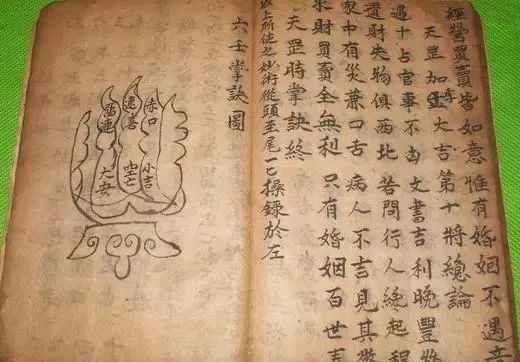 經營買賣皆如意惟有婚姻不遇
天罡加亥大吉第十將總論
遇十占官事不凶 文書吉利晚豐
遺財失物俱西北 若問行人終起程
家中有災蕭口舌 病人不吉見其
求財買賣全無利 只有婚姻百世
天罡時掌訣終
以上所使之妙術從頭至尾一一操錄於左
六壬掌訣圖
赤口
速喜
留連
小吉
空亡
大安